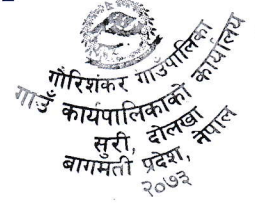 गौरिशंकर गाउँपालिका
गाउँ कार्यपालिकाको कार्यालय
सुरी, दोलखा
बागमती प्रदेश, नेपाल
२०७३